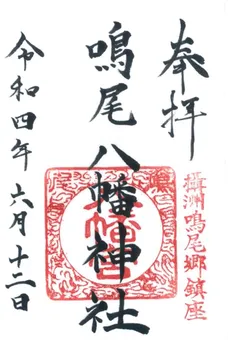 奉拝
摂洲鳴尾郷鎮座
鳴尾八幡神社
令和四年六月十二日